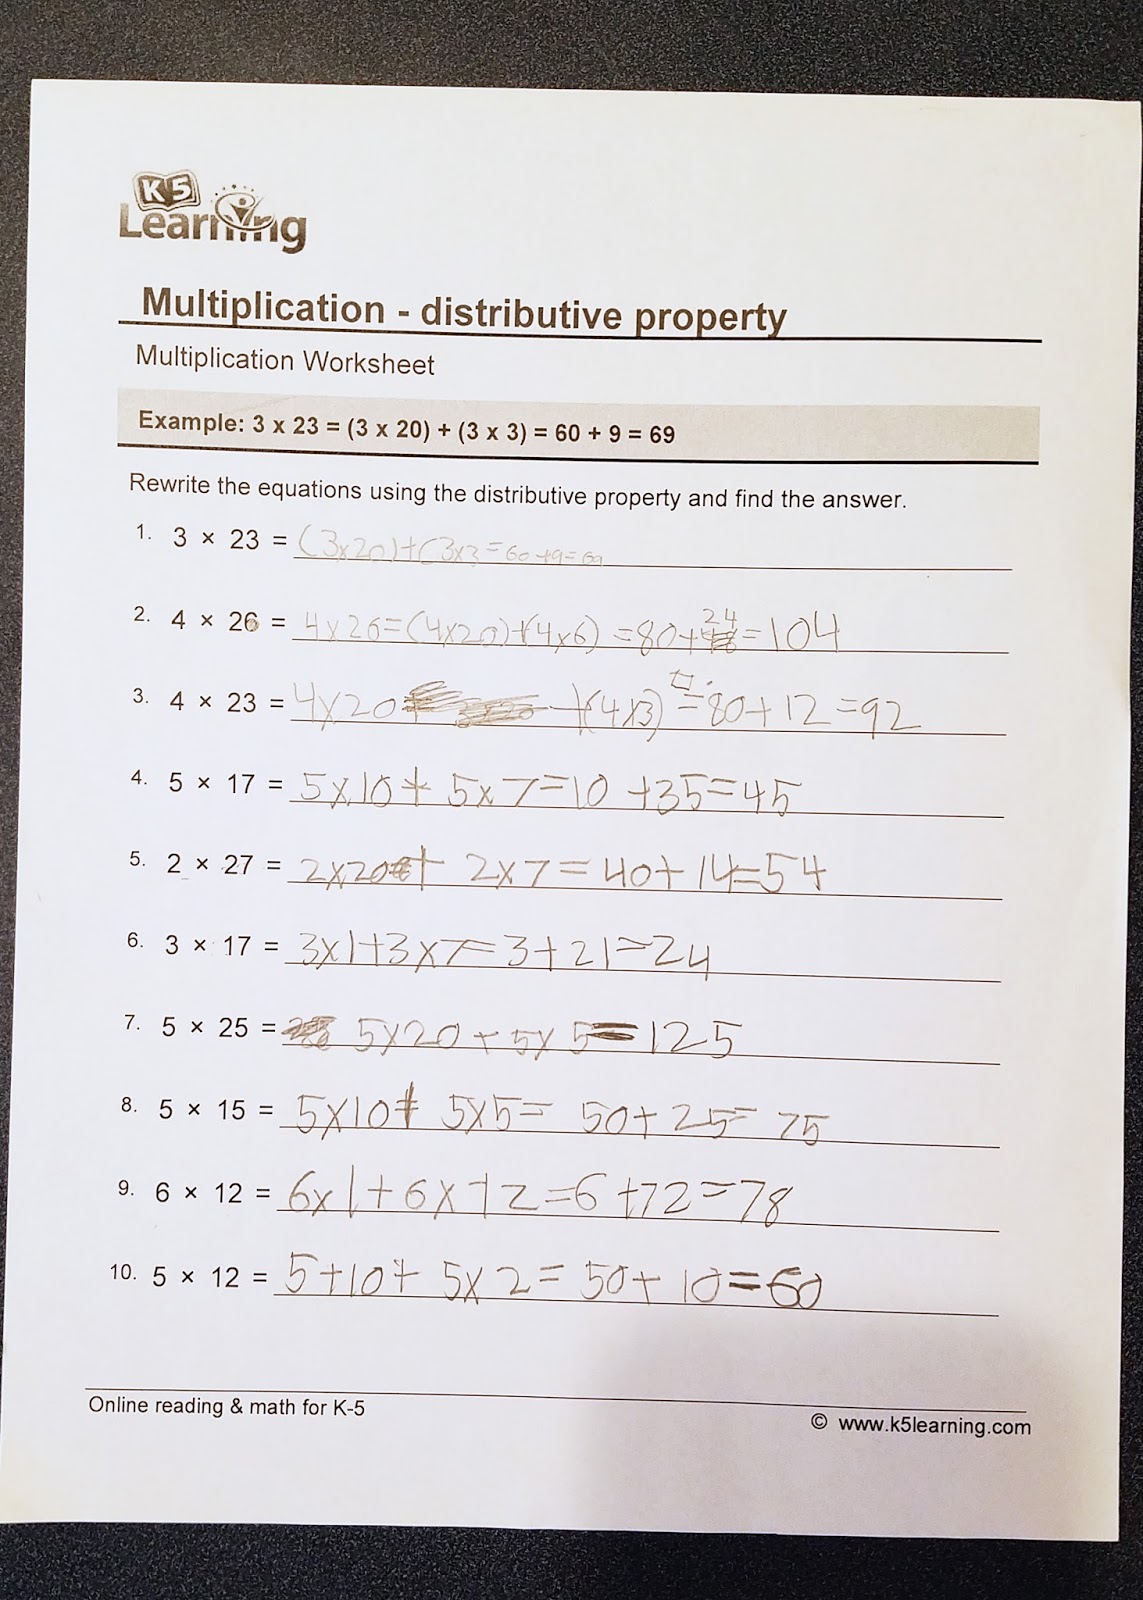 K5
Learning
Multiplication - distributive property
Multiplication Worksheet
Example: 3 x 23 = (3 x 20) + (3 x 3) = 60 + 9 = 69
Rewrite the equations using the distributive property and find the answer.
1. 3 × 23 = (3x20)+(3x3=60+9=69
2. 4 × 26 = 4x26=(4x20)+(4x6) =80+24=104
3. 4 × 23 = 4x20 +(4x3) =80+12=92
4. 5 × 17 = 5x10+ 5x7=10+35=45
5. 2 × 27 = 2x20+ 2x7=40+14=54
6. 3 × 17 = 3x1+3x7=3+21=24
7. 5 × 25 = 5x20+5x5=125
8. 5 × 15 = 5x10+ 5x5= 50+25= 75
9. 6 × 12 = 6x1+6x12=6+72=78
10. 5 × 12 = 5+10+ 5x2=50+10=60
Online reading & math for K-5
© www.k5learning.com